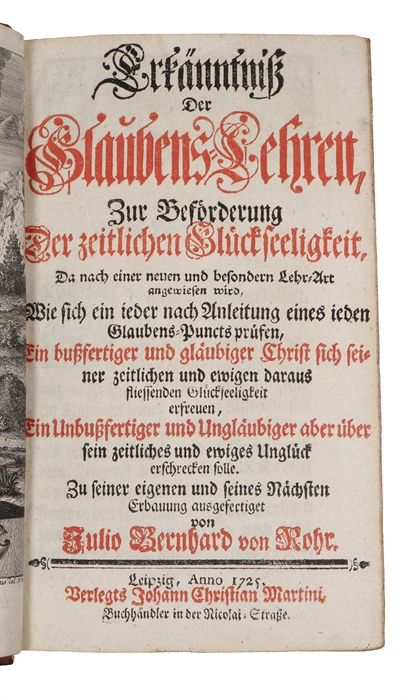 Erkänntniß
Der
Glaubens-Lehren,
Zur Beförderung
Der zeitlichen Glückseeligkeit,
Da nach einer neuen und besondern Lehr-Art
angewiesen wird,
Wie sich ein ieder nach Anleitung eines ieden
Glaubens-Puncts prüfen,
Ein bußfertiger und gläubiger Christ sich sei-
ner zeitlichen und ewigen daraus
fliessenden Glückseeligkeit
erfreuen,
Ein Unbußfertiger und Ungläubiger aber über
sein zeitliches und ewiges Unglück
erschrecken solle.
Zu seiner eigenen und seines Nächsten
Erbauung ausgefertiget
von
Julio Bernhard von Rohr.
Leipzig, Anno 1725.
Verlegts Johann Christian Martini,
Buchhändler in der Nicolai-Straße.